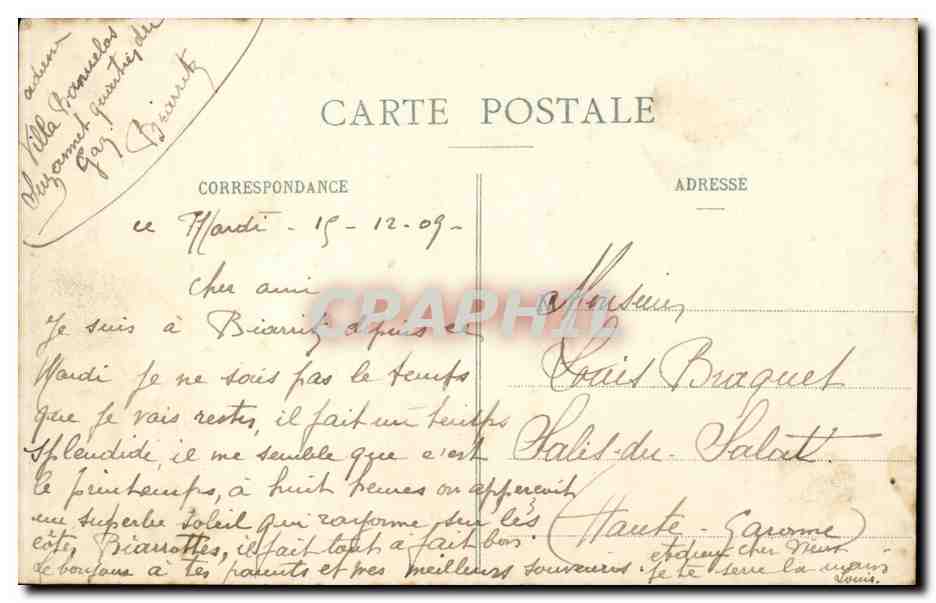 adresse
Villa Banuelos
Suzannet quartier du
Gaz. Biarritz
CARTE POSTALE
CORRESPONDANCE
ADRESSE
ce Mardi - 15 - 12 - 09 -
cher ami
Je suis à Biarritz depuis ce
Mardi je ne sais pas le temps
que je vais rester, il fait un temps
splendide, il me semble que c'est
le printemps, à huit heures on apperçoit
un superbe soleil qui rayonne sur les
côtes Biarrottes, il fait tout à fait bon.
le bonjour à tes parents et mes meilleurs souvenirs.
et dieu cher
je te serre la main
Louis.
Monsieur
Louis Braquet
Salis-du-Salat.
(Haute-Garonne)
CRAPHIL